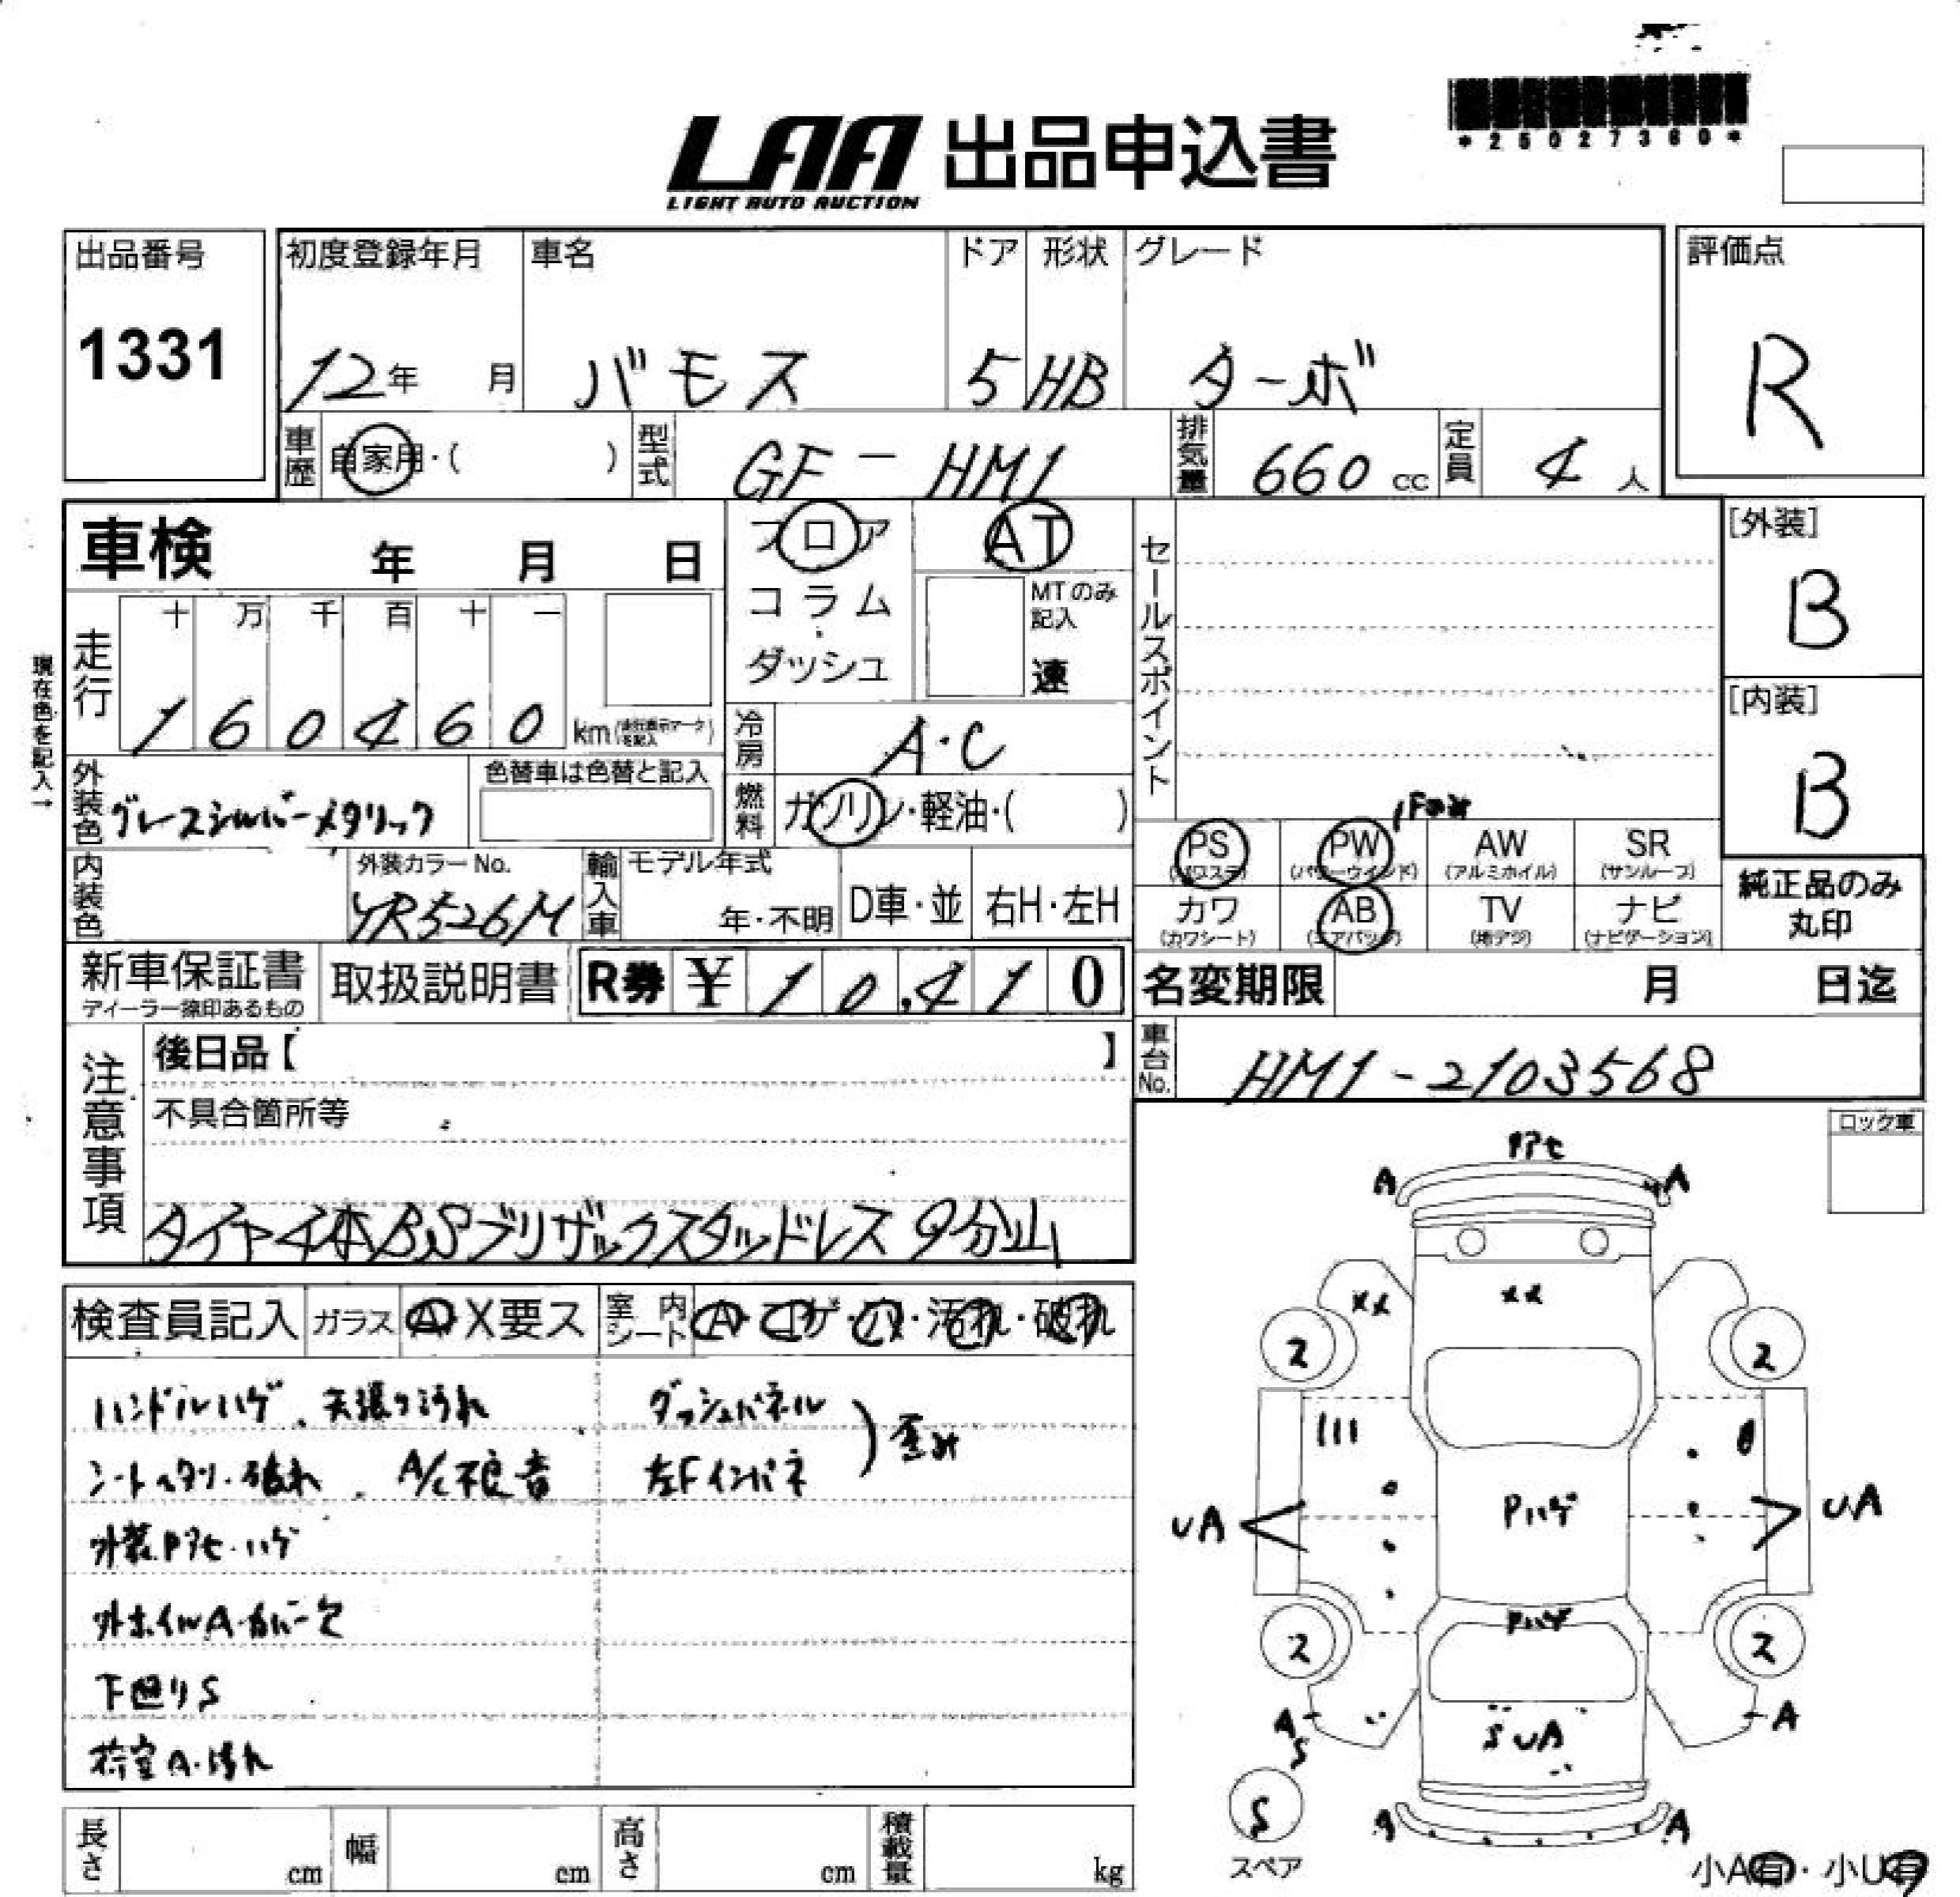 *25027360*
LAA 出品申込書
LIGHT AUTO AUCTION
出品番号 初度登録年月 車名 ドア 形状 グレード 評価点
1331 12年 月 バモス 5 HB ターボ R
車歴 自家用・( ) 型式 GF-HM1 排気量 660 cc 定員 4 人
車検 年 月 日 フロア AT セールスポイント [外装]
コラム MTのみ記入 B
ダッシュ 速
現在色を記入→
走行 十 万 千 百 十 一 [内装]
1 6 0 4 6 0 km 冷房 A・C B
外装色 グレースシルバーメタリック 色替車は色替と記入 燃料 ガソリン・軽油・( )
PS PW AW SR
(パワステ) (パワーウインド) (アルミホイル) (サンルーフ)
内装色 外装カラーNo. YR526M 輸入車 モデル年式 年・不明 D車・並 右H・左H
カワ AB TV ナビ 純正品のみ
(カワシート) (エアバッグ) (地デジ) (ナビゲーション) 丸印
新車保証書 取扱説明書 R券 ¥ 10,410 名変期限 月 日迄
ディーラー捺印あるもの
注意事項 後日品【 】 車台No. HM1-2103568
不具合箇所等 ロック車
タイヤ4本BSブリザックスタッドレス9分山
検査員記入 ガラス A X要ス 室内シート A・コゲ・穴・汚れ・破れ
ハンドルハゲ、天張り汚れ ダッシュパネル
シートヘタリ・破れ、A/C不良音 左Fインパネ 歪み
外装Pアセ・ハゲ
外ホイルA・カバー欠
下回りS
荷室A・汚れ
Pアセ
A A
XX XX
2 2
UA Pハゲ UA
Pハゲ
2 2
A S SUA A
S
スペア A A
長さ cm 幅 cm 高さ cm 積載量 kg
小A有・小U有